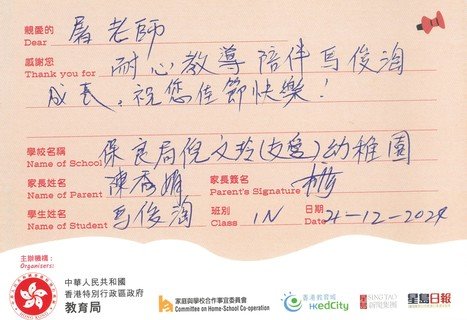 親愛的
Dear 屠老師
感謝您
Thank you for 耐心教導陪伴馬俊淘
成長，祝您佳節快樂！
學校名稱
Name of School 保良局倪文玲(友愛)幼稚園
家長姓名 家長簽名
Name of Parent 陳秀娟 Parent's Signature
學生姓名 班別 日期
Name of Student 馬俊淘 Class 1N Date 21-12-2024
主辦機構：
Organisers:
中華人民共和國
香港特別行政區政府
教育局
家庭與學校合作事宜委員會
Committee on Home-School Co-operation
香港教育城
HKedCity
星島 SINGTAO
新聞集團
星島日報